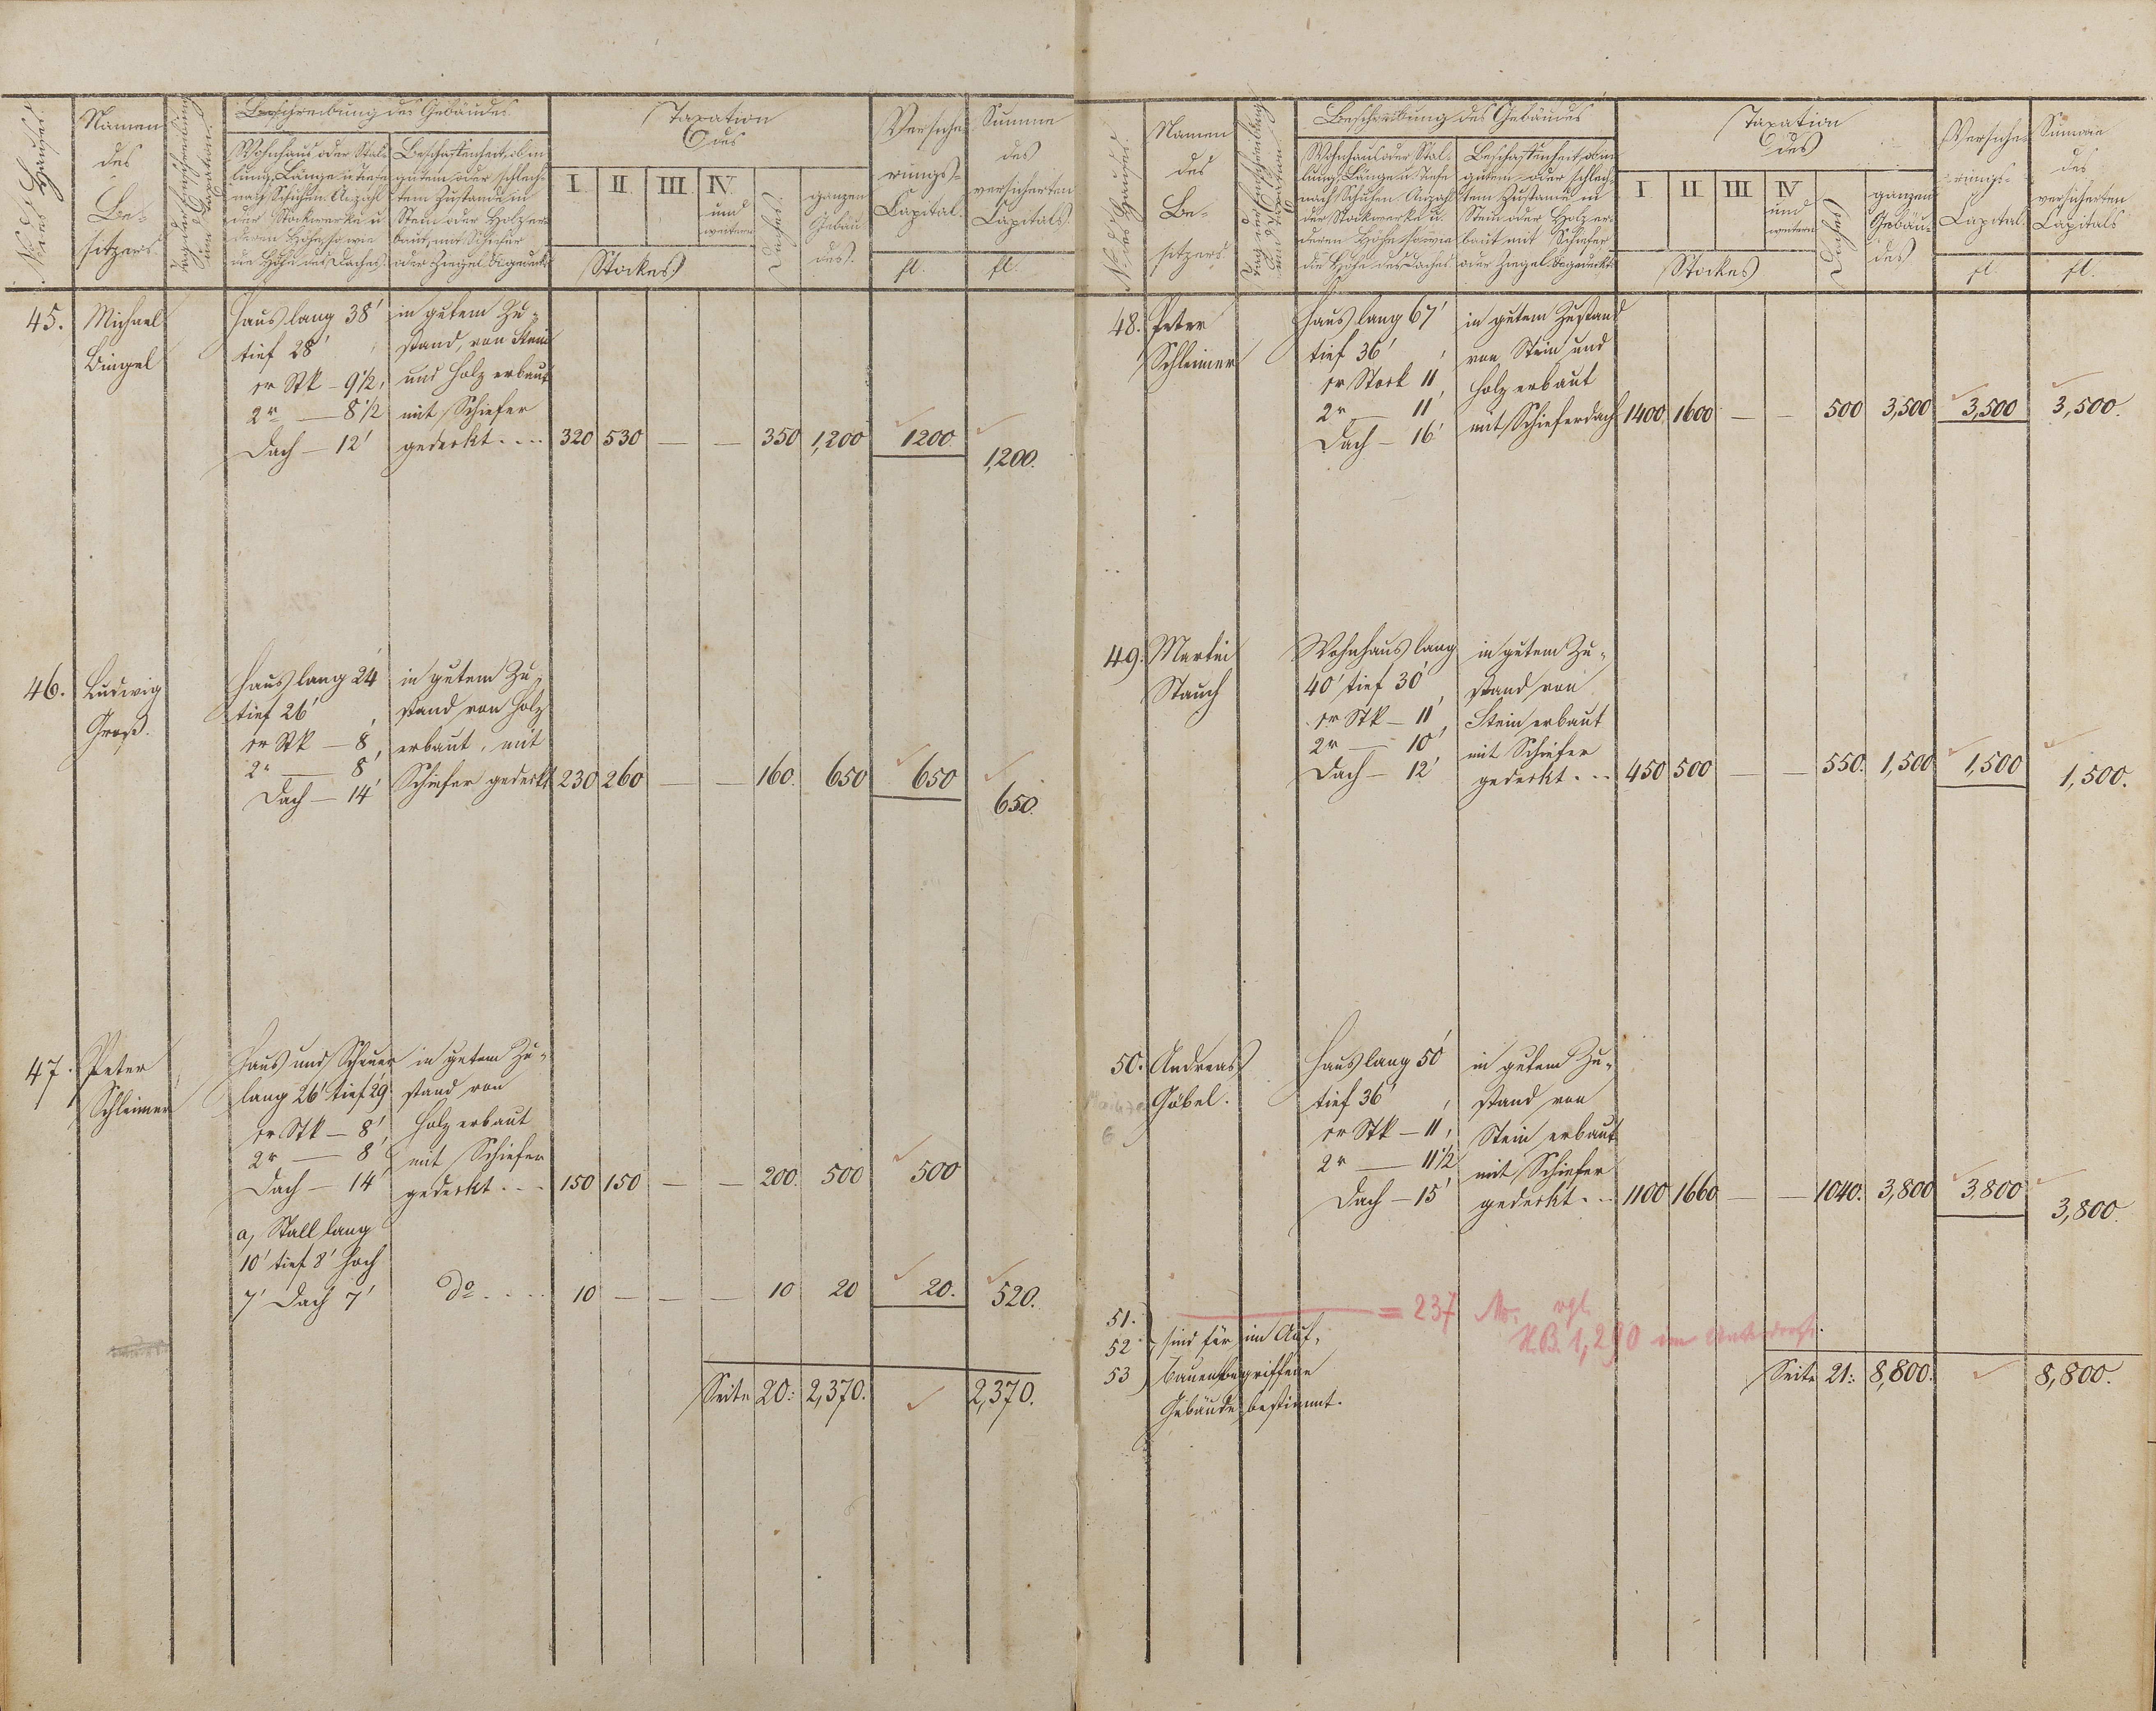 No des Hauses.
Namen
des
Be-
sitzers.
Tag der Einschreibung
und Taxation.
Beschreibung des Gebäudes.
Wohnhaus oder Stal-
lung, Länge u Tiefe
nach Schuhen. Anzahl
der Stockwerke u
deren Höhe so wie
die Höhe des Daches.
Beschaffenheit, ob in
gutem oder schlech-
tem Zustande in
Stein oder Holz er-
baut, mit Schiefer
oder Ziegel &c gedeckt
Taxation
des
I. II. III. IV.
und
weitern
Stockes
Daches.
ganzen
Gebäu-
des.
Versiche-
rungs-
Capital.
fl.
Summe
des
versicherten
Capitals.
fl.
45. Michael
Bingel
Haus lang 38'
tief 28'
1r Stk - 9½'
2r — 8½
Dach — 12'
in gutem Zu-
stand, von Stein
und Holz erbaut
mit Schiefer
gedeckt . . . . 320 530 — — 350 1,200 1200
1,200.
46. Ludwig
Groß.
Haus lang 24'
tief 26'
1r Stk — 8'
2r — 8'
Dach — 14'
in gutem Zu-
stand von Holz
erbaut, mit
Schiefer gedeckt 230 260 — — 160. 650 650
650.
47. Peter
Schleimer
Haus und Scheuer
lang 26' tief 29'
1r Stk — 8'
2r — 8'
Dach — 14'
in gutem Zu-
stand von
Holz erbaut
mit Schiefer
gedeckt . . . 150 150 — — 200. 500 500
a, Stall lang
10' tief 8' hoch
7' Dach 7' do . . . . 10 — — — 10 20 20. 520.
Seite 20: 2,370. 2,370.
No des Hauses.
Namen
des
Be-
sitzers.
Tag der Einschreibung
und Taxation
Beschreibung des Gebäudes
Wohnhaus oder Stal-
lung, Länge u. Tiefe
nach Schuhen. Anzahl
der Stockwerke u.
deren Höhe so wie
die Höhe des Daches.
Beschaffenheit, ob in
gutem oder schlech-
tem Zustande, in
Stein oder Holz er-
baut mit Schiefer
oder Ziegel &c gedeckt
Taxation
des
I II III IV
und
weitern
Stockes
Daches
ganzen
Gebäu-
des
Versiche-
rungs-
Capital.
fl.
Summe
des
versicherten
Capitals
fl.
48. Peter
Schleimer
Haus lang 67'
tief 36'
1r Stock 11'
2r — 11'
Dach — 16'
in gutem Zustand
von Stein und
Holz erbaut
mit Schieferdach 1400 1600 — — 500 3,500 3,500 3,500.
49. Martin
Stauch
Wohnhaus lang
40' tief 30'
1r Stk — 11'
2r — 10'
Dach — 12'
in gutem Zu-
stand von
Stein erbaut
mit Schiefer
gedeckt . . . 450 500 — — 550. 1,500 1,500
1,500.
50. Andreas
Göbel.
Haus lang 50'
tief 36'
1r Stk — 11'
2r — 11½
Dach — 15'
in gutem Zu-
stand von
Stein erbaut
mit Schiefer
gedeckt . . . 1100 1660 — — 1040. 3,800 3,800
3,800.
51. = 237 No. vgl.
52 sind für im Auf-
N.B. 1,290 im
53 bauen begriffene
Gebäude bestimmt.
Seite 21: 8,800. 8,800.